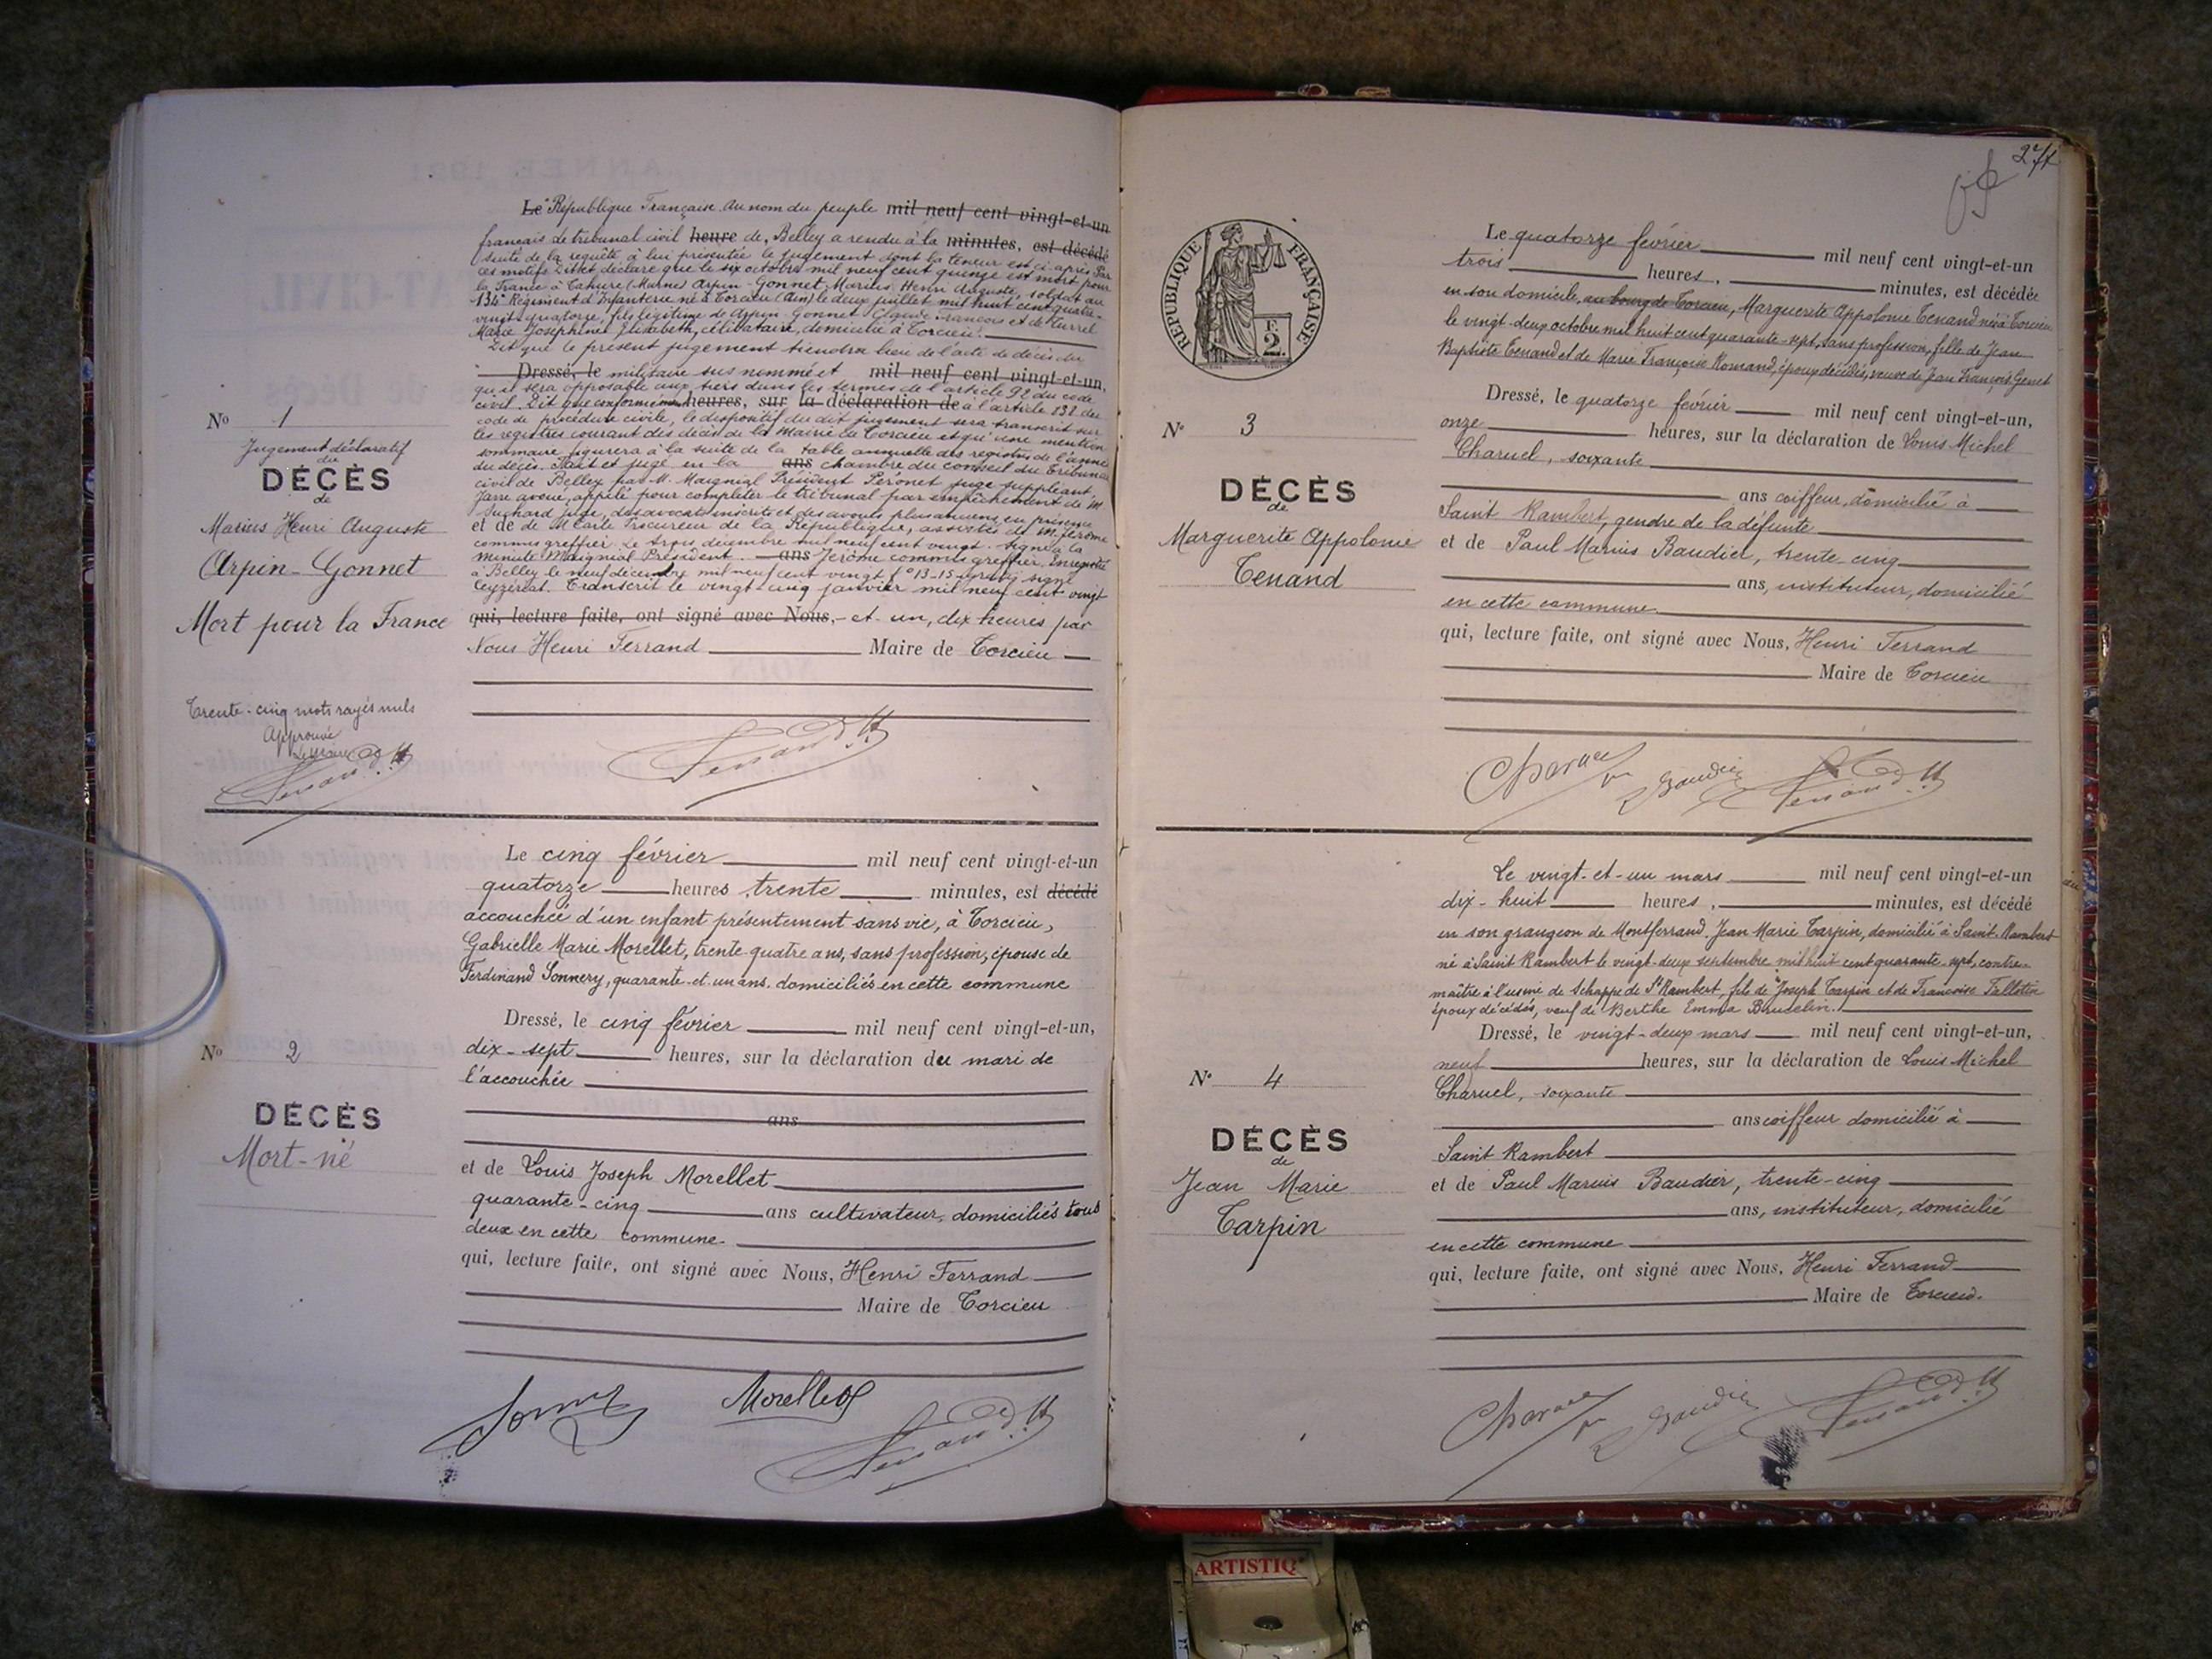 Le République Française. Au nom du peuple mil neuf cent vingt-et-un
français le tribunal civil heure de, Belley a rendu à la minutes, est décédé
suite de la requête à lui présentée le jugement dont la teneur est ci-après. Par
ces motifs Dit et déclare que le six octobre mil neuf cent quinze est mort pour
la France à Tahure (Marne) Arpin-Gonnet, Marius Henri Auguste, soldat au
134e Régiment d'Infanterie né à Torcieu (Ain) le deux juillet mil huit cent quatre-
vingt-quatorze, fils légitime de Arpin-Gonnet Claude François et de Turrel
Marie Joséphine Elisabeth, célibataire, domicilié à Torcieu.
Dit que le présent jugement tiendra lieu de l'acte de décès du
Dressé, le militaire sus nommé et mil neuf cent vingt-et-un,
qu'il sera opposable aux tiers dans les termes de l'article 92 du code
civil. Dit que conformément heures, sur la déclaration de à l'article 132 du
code de procédure civile, le dispositif du dit jugement sera transcrit sur
les registres courant des décès de la Mairie de Torcieu et qu'une mention
sommaire figurera à la suite de la table annuelle des registres de l'année
du décès. Fait et jugé en la ans chambre du conseil du Tribunal
civil de Belley par M. Maignial Président Peronet juge suppléant,
Jarre avoué, appelé pour compléter le tribunal par empêchement de M
Suchard juge, des avocats inscrits et des avoués plus anciens, en présence
et de de M Carle Procureur de la République, assistés de M. Jérôme
commis greffier le trois décembre mil neuf cent vingt. Signé à la
minute Maignial Président. ans Jérôme commis greffier. Enregistré
à Belley le neuf décembre mil neuf cent vingt fo 13-15 signé
Leyzériat. Transcrit le vingt-cinq janvier mil neuf cent vingt
qui, lecture faite, ont signé avec Nous, - et - un, dix heures par
Nous Henri Ferrand Maire de Torcieu
No 1
Jugement déclaratif
du
DÉCÈS
de
Marius Henri Auguste
Arpin-Gonnet
Mort pour la France
Trente-cinq mots rayés nuls
Approuvé
Le Maire
Ferrand H
Ferrand H
Le cinq février mil neuf cent vingt-et-un
quatorze heures trente minutes, est décédé
accouchée d'un enfant présentement sans vie, à Torcieu,
Gabrielle Marie Morellet, trente-quatre ans, sans profession, épouse de
Ferdinand Sonnery, quarante-et-un ans, domiciliés en cette commune
Dressé, le cinq février mil neuf cent vingt-et-un,
dix-sept heures, sur la déclaration du mari de
l'accouchée
ans
et de Louis Joseph Morellet
quarante-cinq ans cultivateur, domiciliés tous
deux en cette commune.
qui, lecture faite, ont signé avec Nous, Henri Ferrand
Maire de Torcieu
No 2
DÉCÈS
Mort-né
Morellet
Ferrand H
274
RÉPUBLIQUE FRANÇAISE
F.
2.
Le quatorze février mil neuf cent vingt-et-un
trois heures, minutes, est décédée
en son domicile, au bourg de Torcieu, Marguerite Appolonie Tenand née à Torcieu
le vingt-deux octobre mil huit cent quarante-sept, sans profession, fille de Jean
Baptiste Tenand et de Marie Françoise Romand, époux décédés, veuve de Jean François Genet
Dressé, le quatorze février mil neuf cent vingt-et-un,
onze heures, sur la déclaration de Louis Michel
Charuel, soixante
ans coiffeur, domicilié à
Saint Rambert, gendre de la défunte
et de Paul Marius Baudier, trente-cinq
ans, instituteur, domicilié
en cette commune
qui, lecture faite, ont signé avec Nous, Henri Ferrand
Maire de Torcieu
No 3
DÉCÈS
de
Marguerite Appolonie
Tenand
Charuel Baudier Ferrand H
Le vingt-et-un mars mil neuf cent vingt-et-un
dix-huit heures, minutes, est décédé
en son grangeon de Montferrand, Jean Marie Tarpin, domicilié à Saint-Rambert
né à Saint Rambert le vingt-deux septembre mil huit cent quarante-sept, contre-
maître à l'usine de Schappe de St Rambert, fils de Joseph Tarpin et de Françoise Tallotin
époux décédés, veuf de Berthe Emma Bruselin.
Dressé, le vingt-deux mars mil neuf cent vingt-et-un,
neuf heures, sur la déclaration de Louis Michel
Charuel, soixante
ans coiffeur domicilié à
Saint Rambert
et de Paul Marius Baudier, trente-cinq
ans, instituteur, domicilié
en cette commune
qui, lecture faite, ont signé avec Nous, Henri Ferrand
Maire de Torcieu.
No 4
DÉCÈS
de
Jean Marie
Tarpin
Charuel Baudier Ferrand H
ARTISTIQ